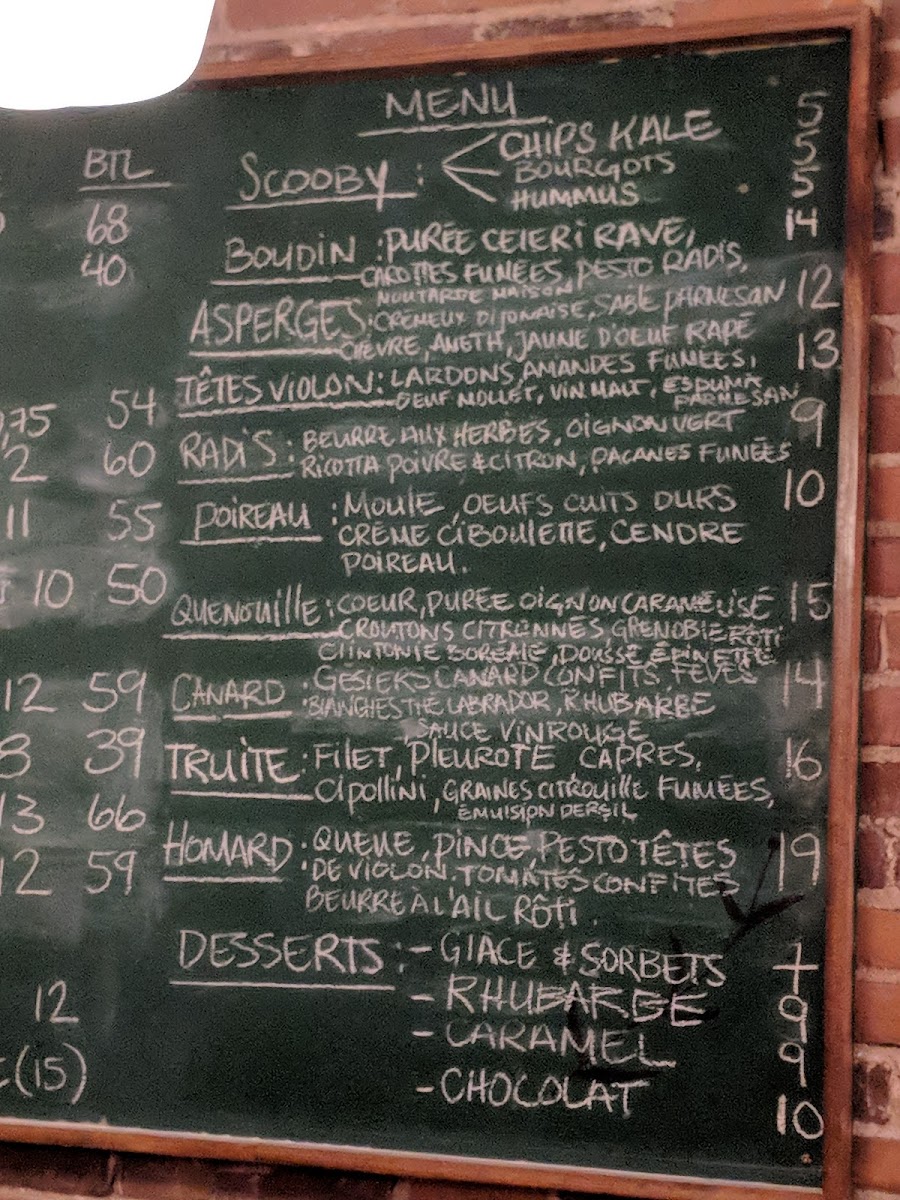 MENU
BTL
SCOOBY : CHIPS KALE 5
BOURGOTS 5
HUMMUS 5
68
40
BOUDIN : PURÉE CELERI RAVE, 14
CAROTTES FUMÉES, PESTO RADIS,
MOUTARDE MAISON
ASPERGES : CRÉMEUX DIJONAISE, SABLÉ PARMESAN 12
CHÈVRE, ANETH, JAUNE D'OEUF RAPÉ
TÊTES VIOLON : LARDONS, AMANDES FUMÉES, 13
OEUF MOLLET, VIN MALT, ESPUMA
PARMESAN
,75 54
RADIS : BEURRE AUX HERBES, OIGNON VERT 9
2 60
RICOTTA POIVRE & CITRON, PACANES FUMÉES
POIREAU : MOULE, OEUFS CUITS DURS 10
11 55
CRÈME CIBOULETTE, CENDRE
POIREAU.
10 50
QUENOUILLE : COEUR, PURÉE OIGNON CARAMÉLISÉ 15
CROUTONS CITRONNÉS, GRENOBLE RÔTI
CLINTONIE BORÉALE, POUSSE ÉPINETTE
CANARD : GÉSIERS CANARD CONFITS FÈVES 14
12 59
BLANCHES THÉ LABRADOR, RHUBARBE
SAUCE VIN ROUGE
TRUITE : FILET, PLEUROTE CAPRES, 16
8 39
CIPOLLINI, GRAINES CITROUILLE FUMÉES,
ÉMULSION PERSIL
13 66
HOMARD : QUEUE, PINCE, PESTO TÊTES 19
12 59
DE VIOLON, TOMATES CONFITES
BEURRE À L'AIL RÔTI.
DESSERTS : - GLACE & SORBETS 7
- RHUBARBE 9
12
- CARAMEL 9
(15)
- CHOCOLAT 10